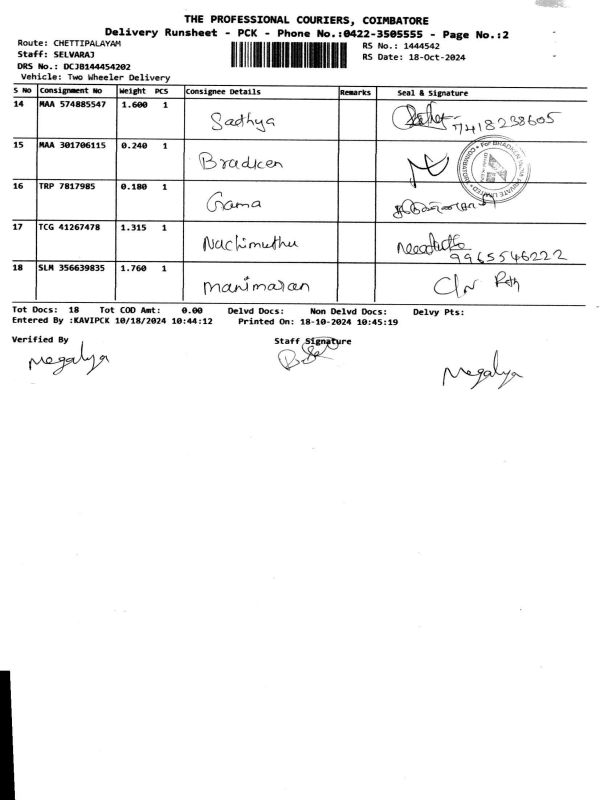 THE PROFESSIONAL COURIERS, COIMBATORE
Delivery Runsheet - PCK - Phone No.:0422-3505555 - Page No.:2
Route: CHETTIPALAYAM
RS No.: 1444542
Staff: SELVARAJ
RS Date: 18-Oct-2024
DRS No.: DCJB144454202
Vehicle: Two Wheeler Delivery
S No Consignment No Weight PCS Consignee Details Remarks Seal & Signature
14 MAA 574885547 1.600 1 Sathya 7418238605
15 MAA 301706115 0.240 1 Bradken
16 TRP 7817985 0.180 1 Gama
17 TCG 41267478 1.315 1 Nachimuthu 9965546222
18 SLM 356639835 1.760 1 Manimaran
Tot Docs: 18 Tot COD Amt: 0.00 Delvd Docs: Non Delvd Docs: Delvy Pts:
Entered By :KAVIPCK 10/18/2024 10:44:12 Printed On: 18-10-2024 10:45:19
Verified By
Staff Signature
Megalya
Megalya